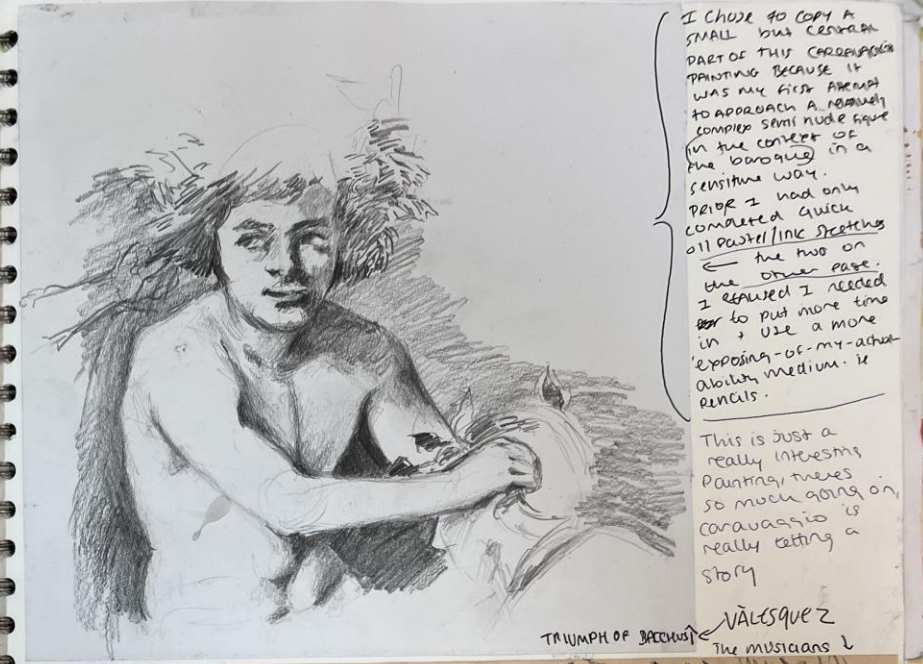 I CHOSE TO COPY A
SMALL but CENTRAL
PART OF THIS CARRAVAGGIO
PAINTING BECAUSE IT
WAS MY FIRST ATTEMPT
TO APPROACH A RELATIVELY
complex semi nude figure
in the context of
the baroque in a
sensitive way.
PRIOR I had only
completed quick
oil pastel/ink sketches
← the two on
the other page.
I I needed
to put more time
in + use a more
exposing-of-my-actual
ability medium. ie
pencils.
This is just a
really interesting
Painting, theres
so much going on,
caravaggio is
really telling a
story
TRIUMPH OF BACCHUS↑ ← VÀLESQUEZ
The musicians ↓